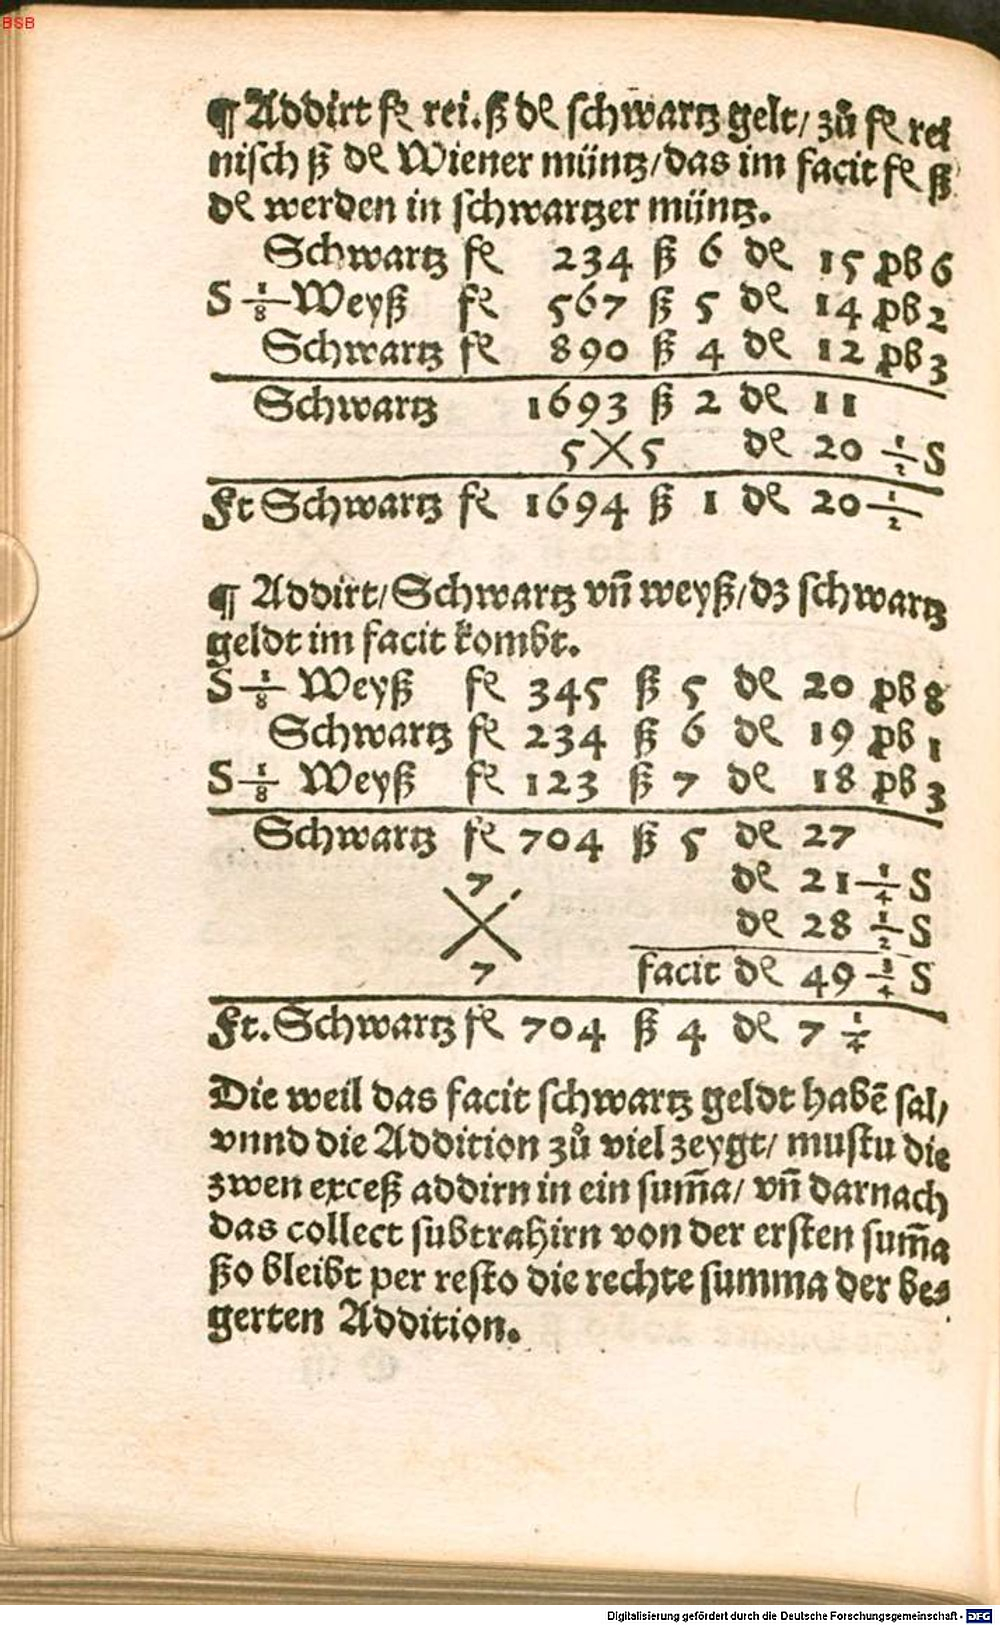 BSB
¶ Addirt fl rei. ß dl schwartz gelt/ zů fl rei
nisch ß dl Wiener müntz/das im facit fl ß
dl werden in schwartzer müntz.
Schwartz fl 234 ß 6 dl 15 pb 6
S 1/8 Weyß fl 567 ß 5 dl 14 pb 2
Schwartz fl 890 ß 4 dl 12 pb 3
Schwartz 1693 ß 2 dl 11
5 X 5 dl 20 1/2 S
Ft Schwartz fl 1694 ß 1 dl 20 1/2
¶ Addirt/Schwartz vñ weyß/dz schwartz
geldt im facit kombt.
S 1/8 Weyß fl 345 ß 5 dl 20 pb 8
Schwartz fl 234 ß 6 dl 19 pb 1
S 1/8 Weyß fl 123 ß 7 dl 18 pb 3
Schwartz fl 704 ß 5 dl 27
7 dl 21 1/4 S
X dl 28 1/2 S
7 facit dl 49 3/4 S
Ft. Schwartz fl 704 ß 4 dl 7 1/4
Die weil das facit schwartz geldt habē sal/
vnnd die Addition zů viel zeygt/ mustu die
zwen exceß addirn in ein sum̄a/ vñ darnach
das collect subtrahirn von der ersten sum̄a
ßo bleibt per resto die rechte summa der be⸗
gerten Addition.
Digitalisierung gefördert durch die Deutsche Forschungsgemeinschaft - DFG